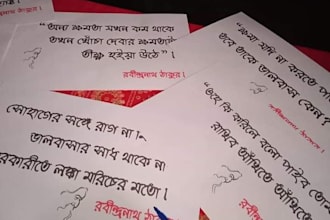 "অন্য ক্ষমতা যখন কম থাকে
তখন খোঁচা দেবার ক্ষমতাটা
তীক্ষ্ণ হইয়া উঠে"।
রবীন্দ্রনাথ ঠাকুর।
"ক্ষমা যদি না করতে পা
তবে তাকে ভালবাস কেন?
রবীন্দ্রনাথ ঠাকুর।
সোহাগের সঙ্গে রাগ না
ভালবাসার সাধ থাকে না
তরকারীতে লঙ্কা মরিচের মতো।
রবীন্দ্রনাথ ঠাকু
কি করিলে বলো পাইব তো
রাখিব আঁখিতে আঁখিতে